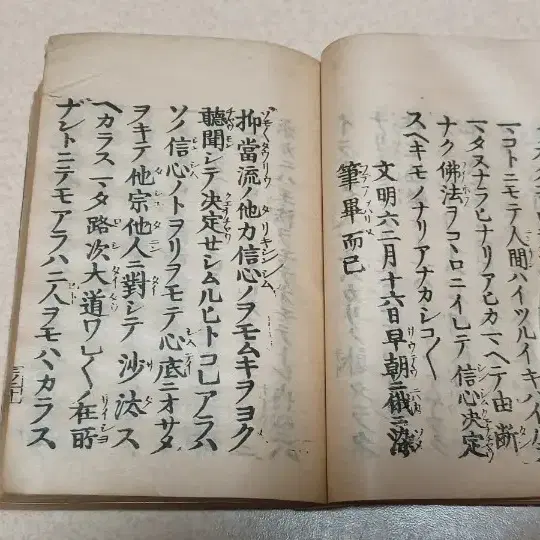 マコトニモテ人間ハイツルイキハ
マタヌナラヒナリアヒカマヘテ由断
ナク佛法ヲコヽロニイレテ信心決定
スヘキモノナリアナカシコ〱
文明六二月十六日早朝ニ俄ニ染
筆畢而已
抑當流ノ他力信心ノヲモムキヲヨク
聽聞シテ決定セシムルヒトコレアラハ
ソノ信心ノトヲリヲモテ心底ニオサメ
ヲキテ他宗他人ニ對シテ沙汰ス
ヘカラスマタ路次大道ワレ〱ノ在所
ナントニテモアラハニ人ヲモハヽカラス